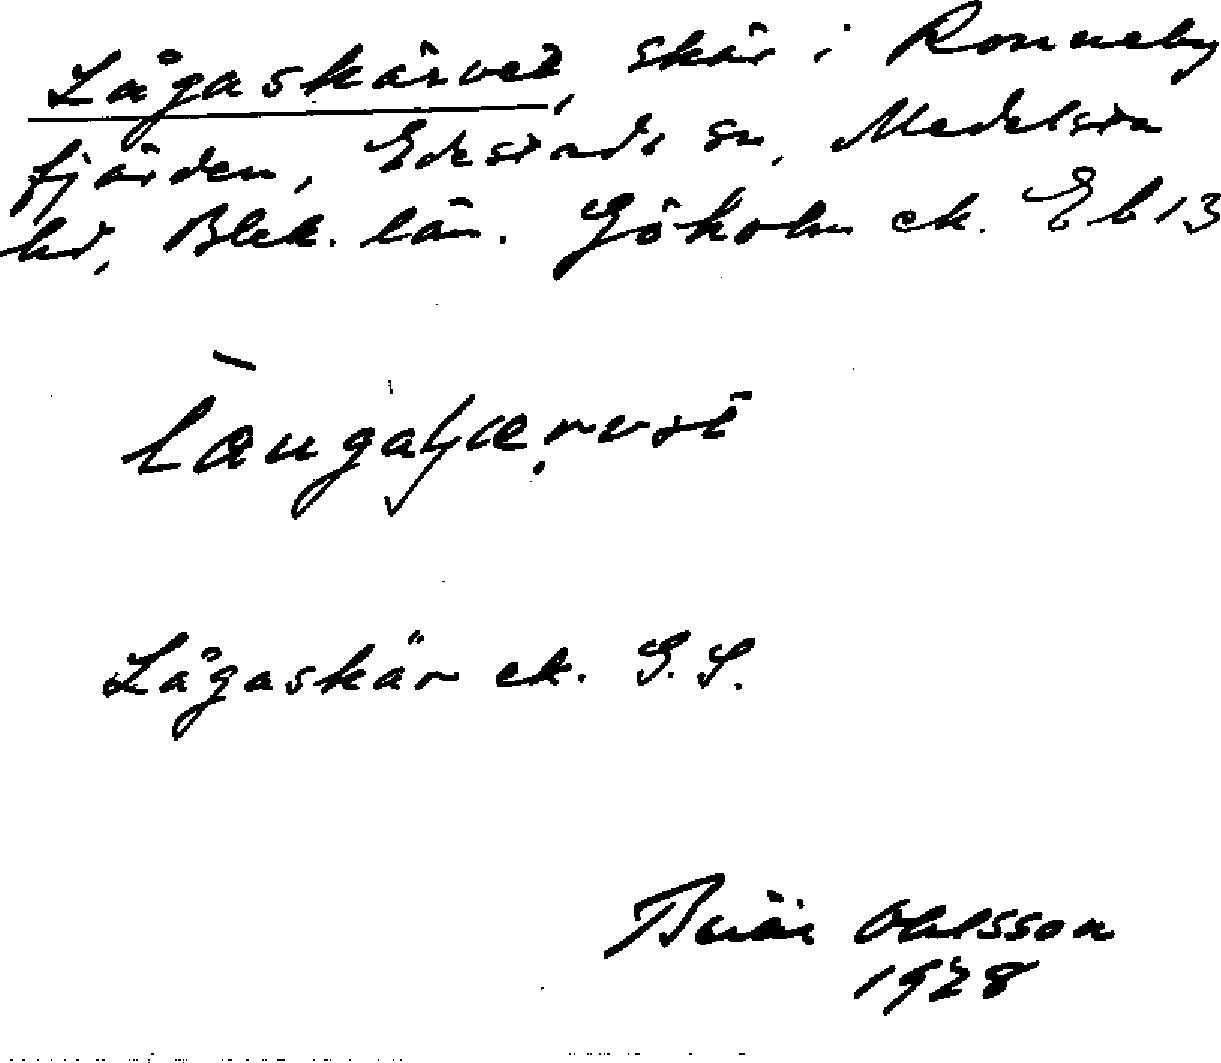 Lågaskärvet, skär i Ronneby
fjärden, Edestads sn, Medelsta
hd, Blek. län. Göholm ek. Eb 13
Lågaskär ek. G.S.
Ohlsson
1928